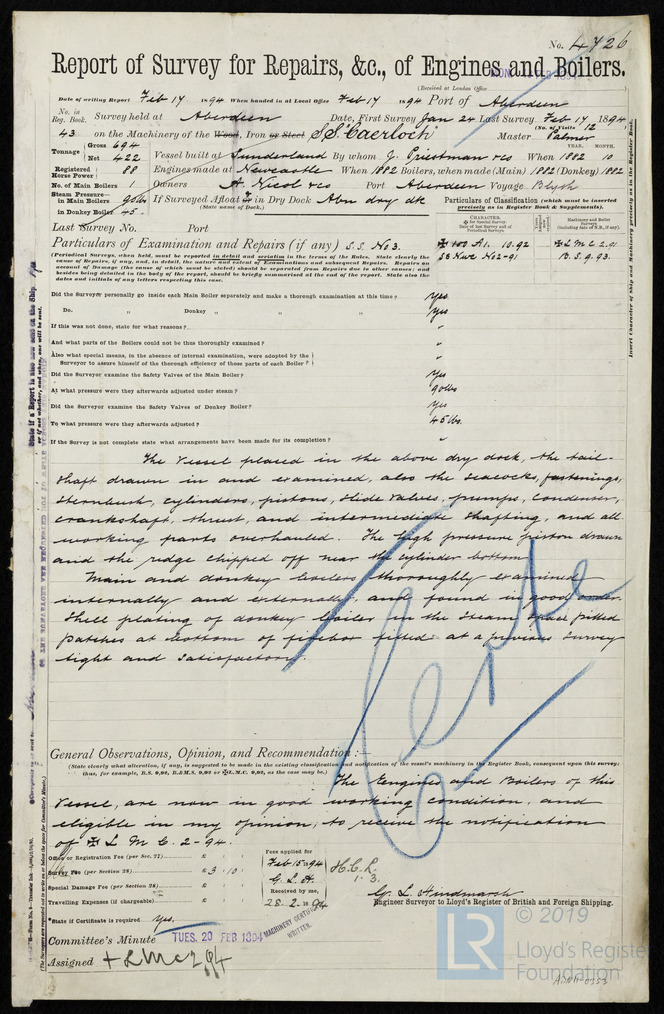 No. 4726
Report of Survey for Repairs, &c., of Engines and Boilers.
(Received at London Office
Date of writing Report Feb 17 1894 When handed in at Local Office Feb 17 1894 Port of Aberdeen
No. in Reg. Book. Survey held at Aberdeen Date, First Survey Jan 24 Last Survey Feb 17 1894
(No. of Visits 12)
43 on the Machinery of the Wood, Iron or Steel S.S. "Caerloch" Master Palmer
Tonnage Gross 694 Net 422 Vessel built at Sunderland By whom J. Priestman & Co When 1882 YEAR. MONTH. 10
Registered Horse Power 88 Engines made at Newcastle When 1882 Boilers, when made (Main) 1882 (Donkey) 1882
No. of Main Boilers 1 Owners A. Nicol & Co Port Aberdeen Voyage Blyth
Steam Pressure in Main Boilers 90lbs If Surveyed Afloat or in Dry Dock Abn dry dk
(State name of Dock.)
in Donkey Boiler 45
Particulars of Classification (which must be inserted precisely as in Register Book & Supplements).
Last Survey No. Port
CHARACTER. for Special Survey. Date of last Survey and of Periodical Surveys.
Machinery and Boiler Surveys (including date of N.B., if any).
Particulars of Examination and Repairs (if any) S.S. No 3.
✠ 100 A.1. 10.92 ✠ L M C 2.91
SS Nwc No2-91 B.S. 9.93.
(Periodical Surveys, when held, must be reported in detail and seriatim in the terms of the Rules. State clearly the
cause of Repairs, if any, and, in detail, the nature and extent of Examinations and subsequent Repairs. Repairs on
account of Damage (the cause of which must be stated) should be separated from Repairs due to other causes; and
besides being detailed in the body of the report, should be briefly summarised at the end of the report. State also the
dates and initials of any letters respecting this case.
Insert Character of Ship and Machinery precisely as in the Register Book.
Did the Surveyor personally go inside each Main Boiler separately and make a thorough examination at this time? Yes
Do. " Donkey " " " Yes
If this was not done, state for what reasons? "
And what parts of the Boilers could not be thus thoroughly examined? "
Also what special means, in the absence of internal examination, were adopted by the
Surveyor to assure himself of the thorough efficiency of those parts of each Boiler? "
Did the Surveyor examine the Safety Valves of the Main Boiler? Yes
At what pressure were they afterwards adjusted under steam? 90lbs
Did the Surveyor examine the Safety Valves of Donkey Boiler? Yes
To what pressure were they afterwards adjusted? 45 lbs.
If the Survey is not complete state what arrangements have been made for its completion? "
The Vessel placed in the above dry dock, the tail-
shaft drawn in and examined, also the seacocks, fastenings,
sternbush, cylinders, pistons, slide valves, pumps, condenser,
crankshaft, thrust, and intermediate shafting, and all
working parts overhauled. The high pressure piston drawn
and the ridge chipped off near the cylinder bottom.
Main and donkey boilers thoroughly examined
internally and externally, and found in good order.
Shell plating of donkey boiler in the steam space pitted
patches at bottom of firebox fitted at a previous survey
tight and satisfactory.
Certe
General Observations, Opinion, and Recommendation:—
(State clearly what alteration, if any, is suggested to be made in the existing classification and notification of the vessel's machinery in the Register Book, consequent upon this survey;
thus, for example, B.S. 9,92, B.&M.S. 9,92 or ✠L.M.C. 9,92, as the case may be.)
The Engines and Boilers of this
Vessel, are now in good working condition, and
eligible in my opinion, to receive the notification
of ✠ L M C 2-94.
Office or Registration Fee (per Sec. 27) £ : :
Survey Fee (per Section 28) £ 3 : 10 :
Special Damage Fee (per Section 28) £ : :
Travelling Expenses (if chargeable) £ : :
Fees applied for
Feb 15 1894
G. L. H.
Received by me,
28. 2. 1894
H.C.R.
1. 3.
G. L. Hindmarsh
Engineer Surveyor to Lloyd's Register of British and Foreign Shipping.
*State if Certificate is required Yes.
MACHINERY CERTIFICATE WRITTEN.
Committee's Minute TUES. 20 FEB 1894
Assigned + LMC 2,94
© 2019
LR
Lloyd's Register
Foundation
ABN11-0353